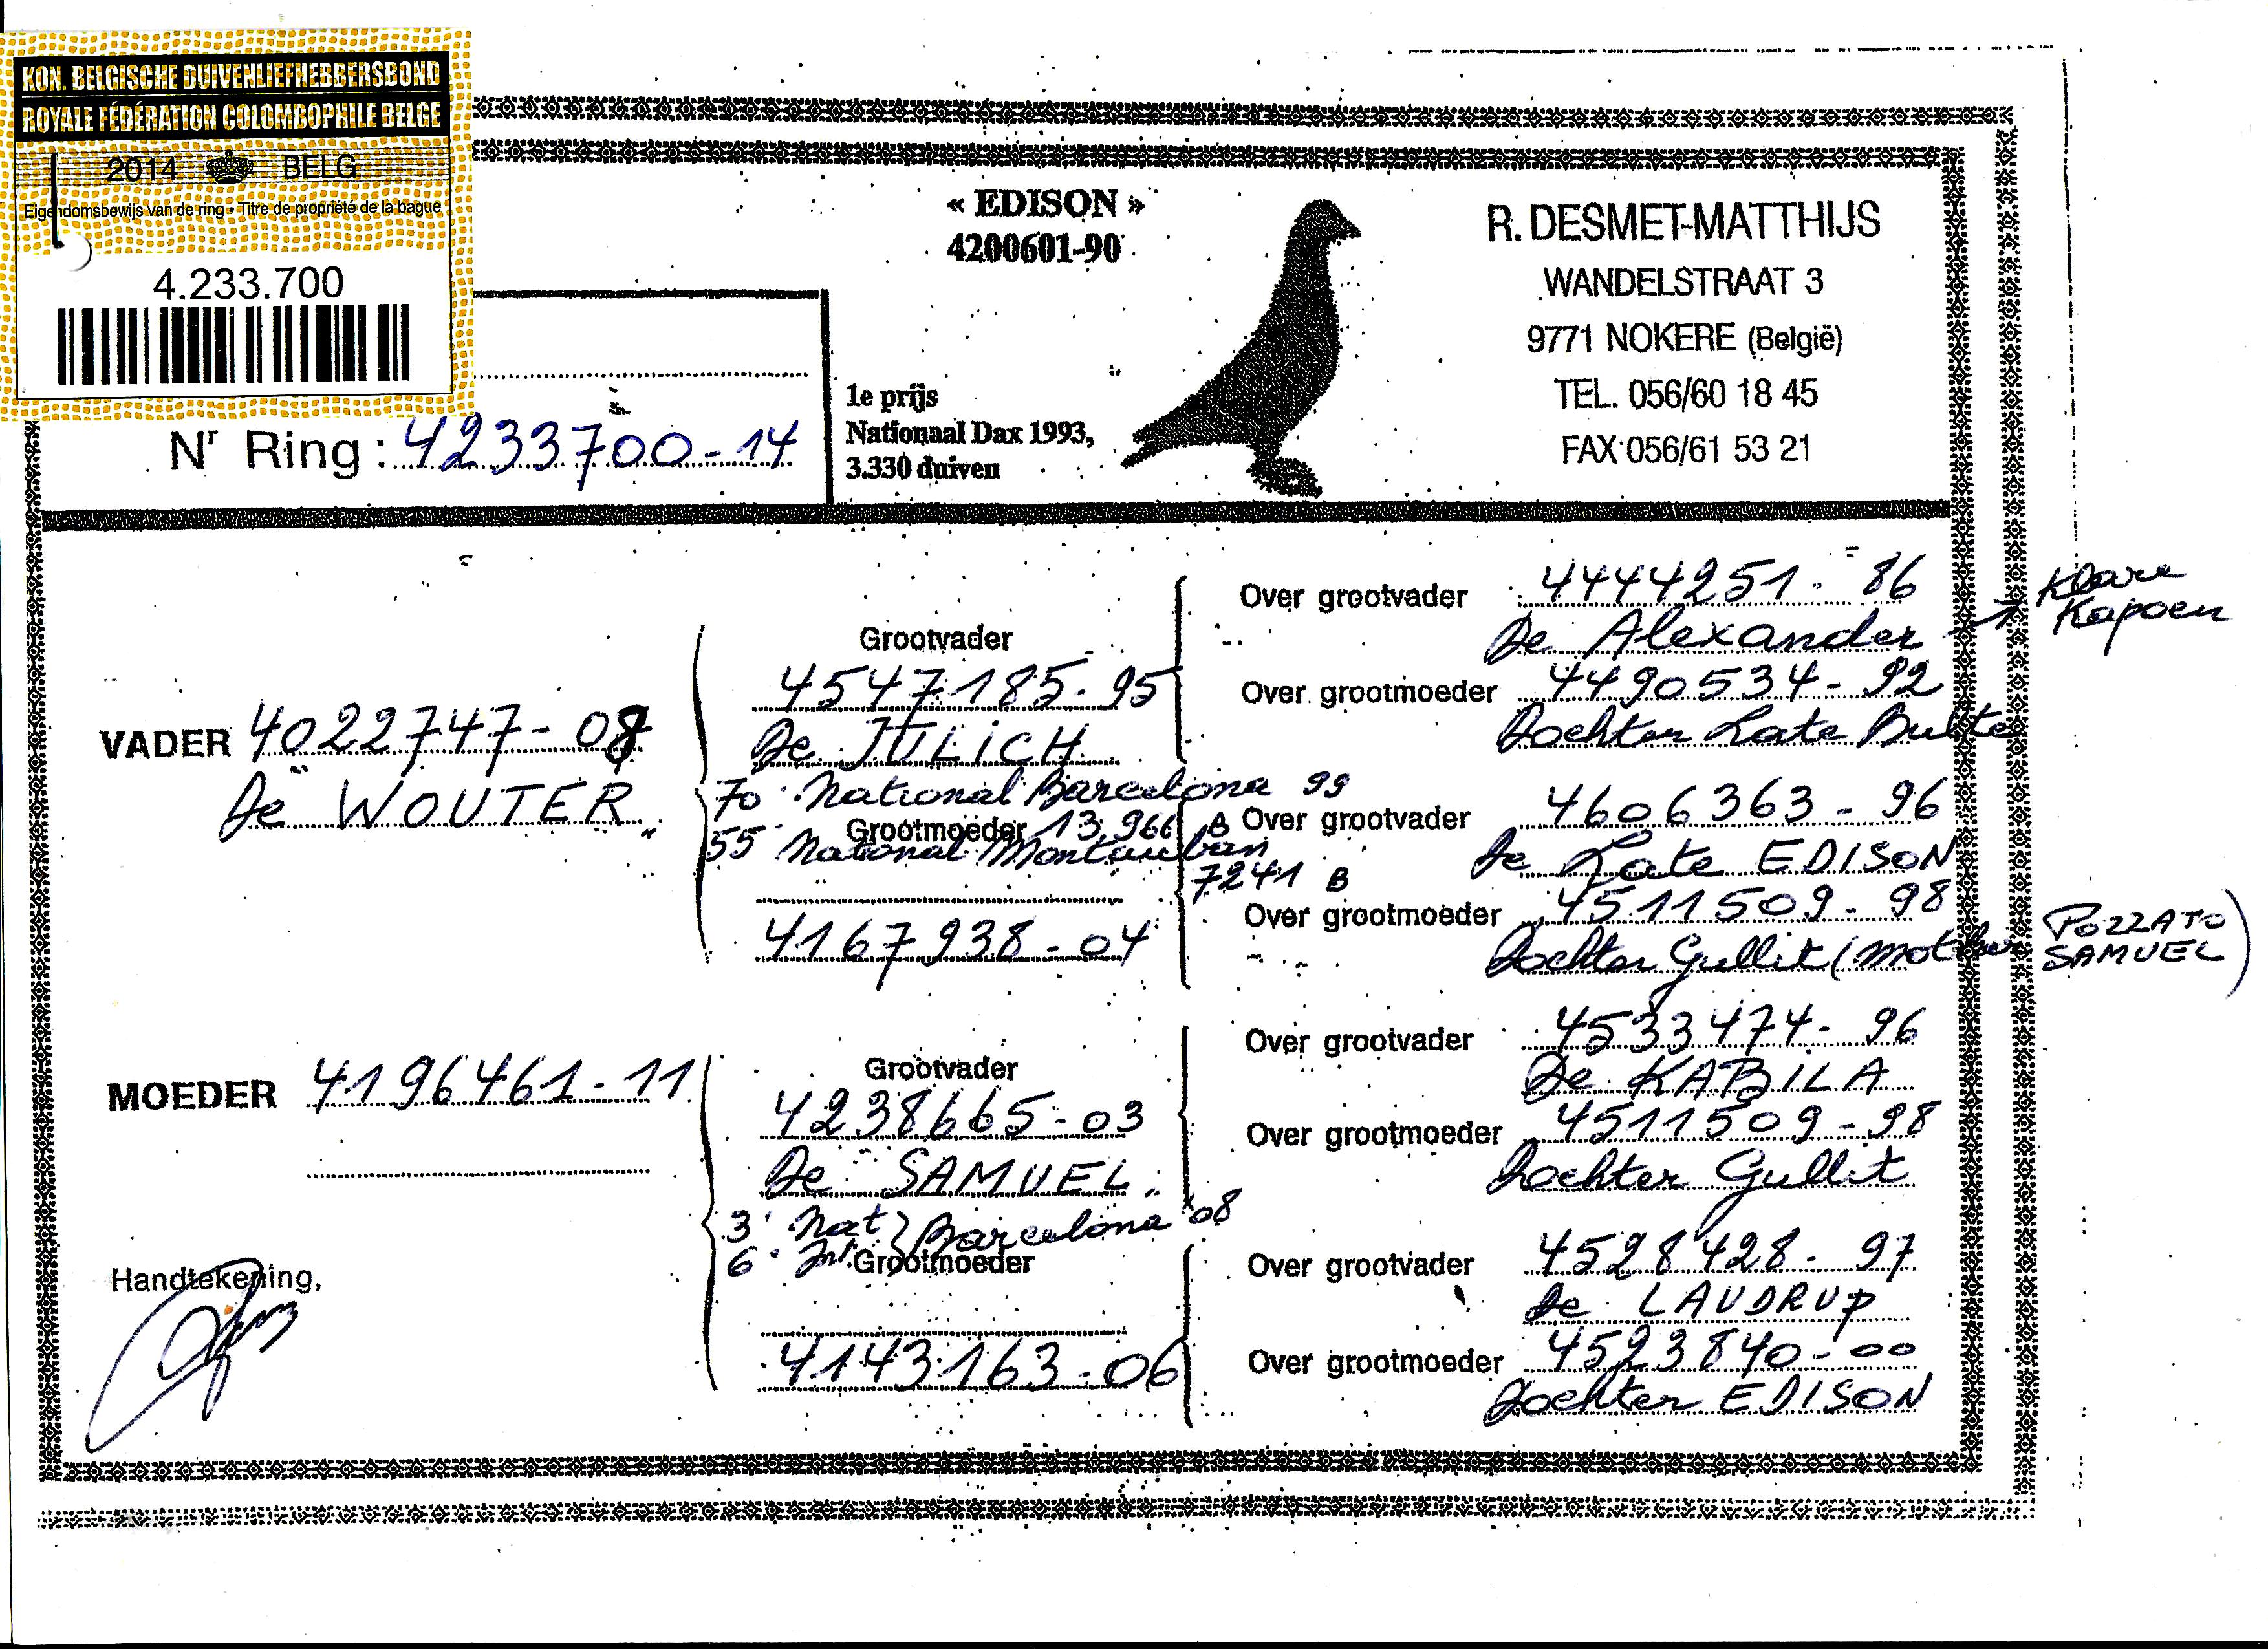 KON. BELGISCHE DUIVENLIEFHEBBERSBOND
ROYALE FÉDÉRATION COLOMBOPHILE BELGE
2014 BELG
Eigendomsbewijs van de ring • Titre de propriété de la bague
4.233.700
« EDISON »
4200601-90
1e prijs
Nationaal Dax 1993,
3.330 duiven
R. DESMET-MATTHIJS
WANDELSTRAAT 3
9771 NOKERE (België)
TEL. 056/60 18 45
FAX 056/61 53 21
Nr Ring : 4233700-14
VADER 4022747-08
De "WOUTER"
Grootvader
4547185-95
De JULICH
70 National Barcelona 99
13.966 B
55 National Montauban
7241 B
Grootmoeder
4167938-04
Over grootvader 4444251-86
De Alexander → Klare Kapoen
Over grootmoeder 4490534-92
Dochter Late Bulte
Over grootvader 4606363-96
De Late EDISON
Over grootmoeder 4511509-98
Dochter Gullit (mother POZZATO SAMUEL)
MOEDER 4196461-11
Grootvader
4238665-03
De "SAMUEL"
3' Nat } Barcelona '08
6' Int.
Grootmoeder
4143163-06
Over grootvader 4533474-96
De KABILA
Over grootmoeder 4511509-98
Dochter Gullit
Over grootvader 4528428-97
De LAUDRUP
Over grootmoeder 4523840-00
Dochter EDISON
Handtekening,